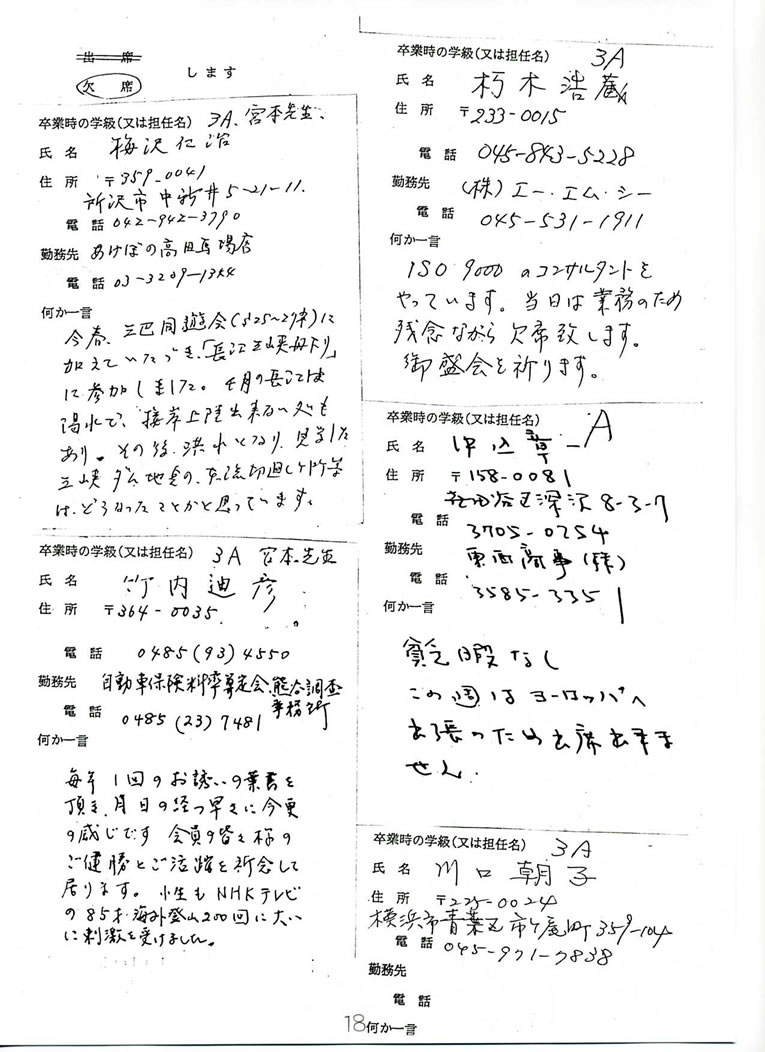 出席
欠席
します
卒業時の学級(又は担任名) 3A、宮本先生、
氏名 梅沢仁治
住所 〒359-0041
所沢市中新井5-21-11.
電話 042-942-3790
勤務先 あけぼの高田馬場店
電話 03-3209-1354
何か一言
今春、三巴同遊会(S25~29卒)に
加えていただき、「長江三峡舟下り」
に参加しました。4月の長江は
渇水で、接岸上陸出来ない処も
あり。その後、洪水となり、見学した
三峡ダム地点の、本流切廻し箇所等
は、どうなったことかと思っています。
卒業時の学級(又は担任名) 3A 宮本先生
氏名 竹内迪彦
住所 〒364-0035
電話 0485(93)4550
勤務先 自動車保険料率算定会、熊谷調査
事務所
電話 0485(23)7481
何か一言
毎年1回のお誘いの葉書を
頂き、月日の経つ早さに今更
の感じです 会員の皆々様の
ご健勝とご活躍を祈念して
居ります。小生もNHKテレビ
の85才海外登山200回に大い
に刺激を受けました。
卒業時の学級(又は担任名) 3A
氏名 朽木浩蔵
住所 〒233-0015
電話 045-843-5228
勤務先 (株)エー・エム・シー
電話 045-531-1911
何か一言
ISO 9000のコンサルタントを
やっています。当日は業務のため
残念ながら欠席致します。
御盛会を祈ります。
卒業時の学級(又は担任名) A
氏名 伊込 一
住所 〒158-0081
世田谷区深沢8-3-7
電話 3705-0254
勤務先 東西商事(株)
電話 3585-3351
何か一言
貧乏暇なし
この週はヨーロッパへ
出張のため出席出来ま
せん.
卒業時の学級(又は担任名) 3A
氏名 川口朝子
住所 〒225-0024
横浜市青葉区市ケ尾町359-104
電話 045-971-7838
勤務先
電話
18 何か一言